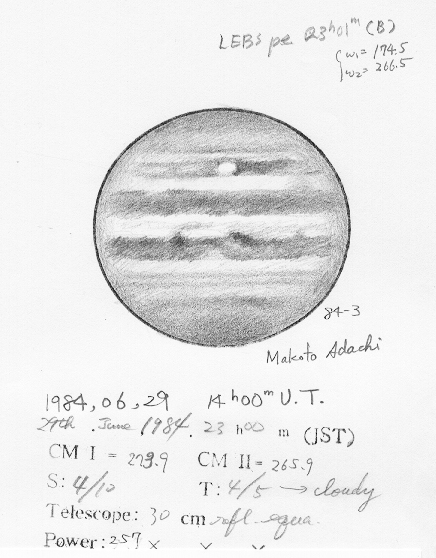 LEBs pe 23h01m (B)
ω1= 174.5
ω2= 266.5
84-3
Makoto Adachi
1984, 06, 29 14h00m U.T.
29th. June 1984. 23 h00 m (JST)
CM I = 273.9 CM II= 265.9
S: 4/10 T: 4/5 → cloudy
Telescope: 30 cm refl. equa.
Power: 257 x x x